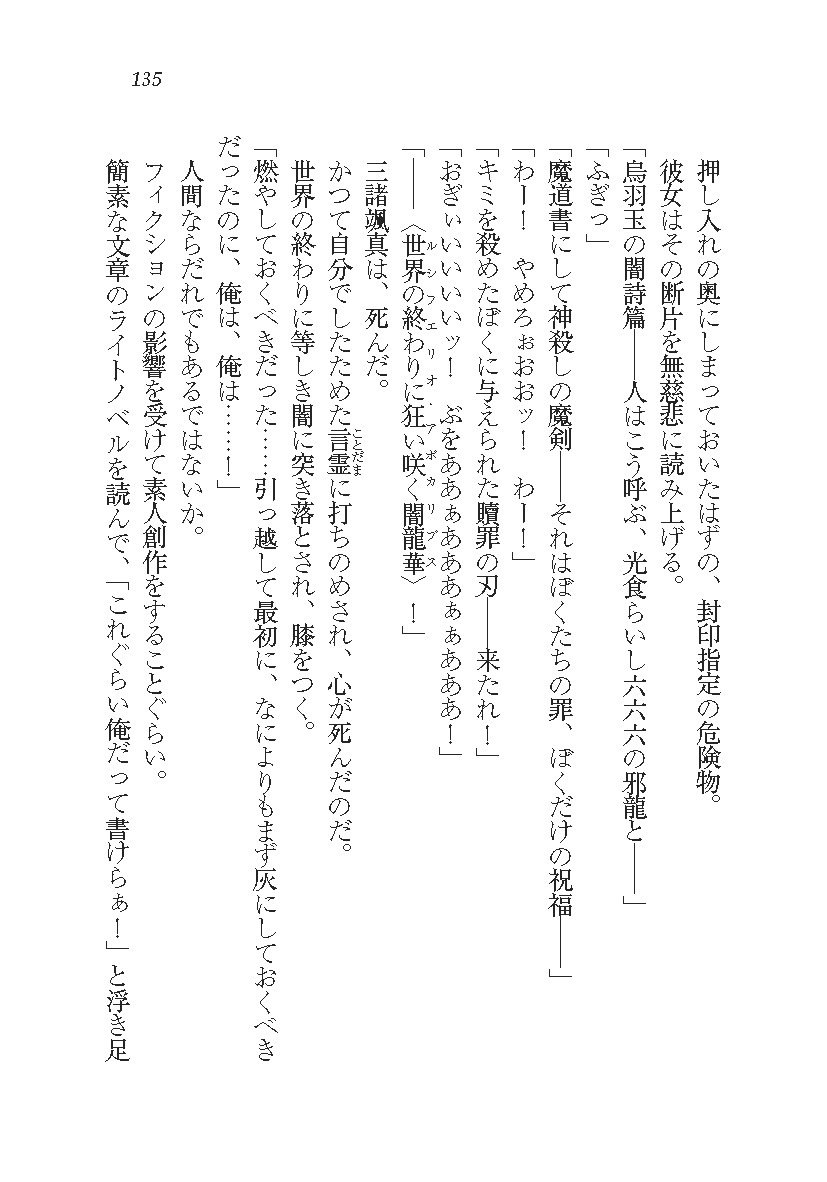 135
押し入れの奥にしまっておいたはずの、封印指定の危険物。
彼女はその断片を無慈悲に読み上げる。
「烏羽玉の闇詩篇――人はこう呼ぶ、光食らいし六六六の邪龍と――」
「ふぎっ」
「魔道書にして神殺しの魔剣――それはぼくたちの罪、ぼくだけの祝福――」
「わー！　やめろぉおおッ！　わー！」
「キミを殺めたぼくに与えられた贖罪の刃――来たれ！」
「おぎぃいいいいッ！　ぶをああぁあああぁぁあああ！」
「――〈世界の終わりに狂い咲く闇龍華〉！」
ルシフエリオ・アポカリプス
三諸颯真は、死んだ。
かつて自分でしたためた言霊に打ちのめされ、心が死んだのだ。
ことだま
世界の終わりに等しき闇に突き落とされ、膝をつく。
「燃やしておくべきだった……引っ越して最初に、なによりもまず灰にしておくべき
だったのに、俺は、俺は……！」
人間ならだれでもあるではないか。
フィクションの影響を受けて素人創作をすることぐらい。
簡素な文章のライトノベルを読んで、「これぐらい俺だって書けらぁ！」と浮き足